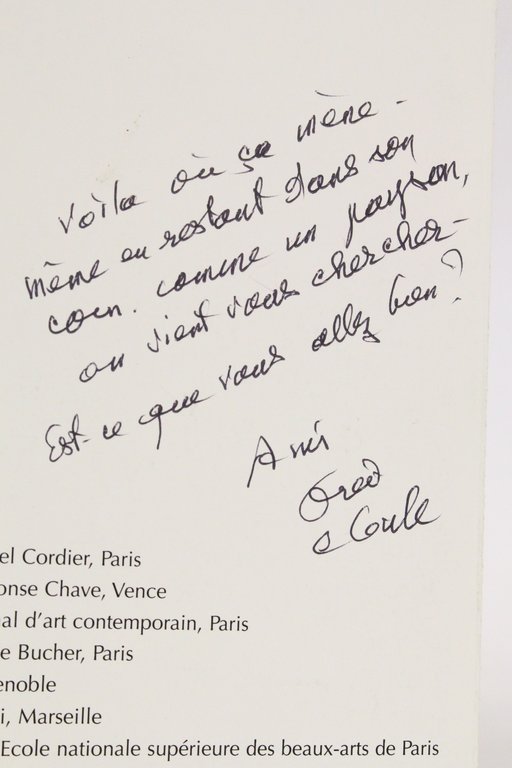 Voilà où ça mène -
même en restant dans son
coin. comme un paysan,
on vient vous chercher -
Est-ce que vous allez bien?
Ami
Fred
el Cordier, Paris
onse Chave, Vence
al d'art contemporain, Paris
e Bucher, Paris
enoble
i, Marseille
Ecole nationale supérieure des beaux-arts de Paris